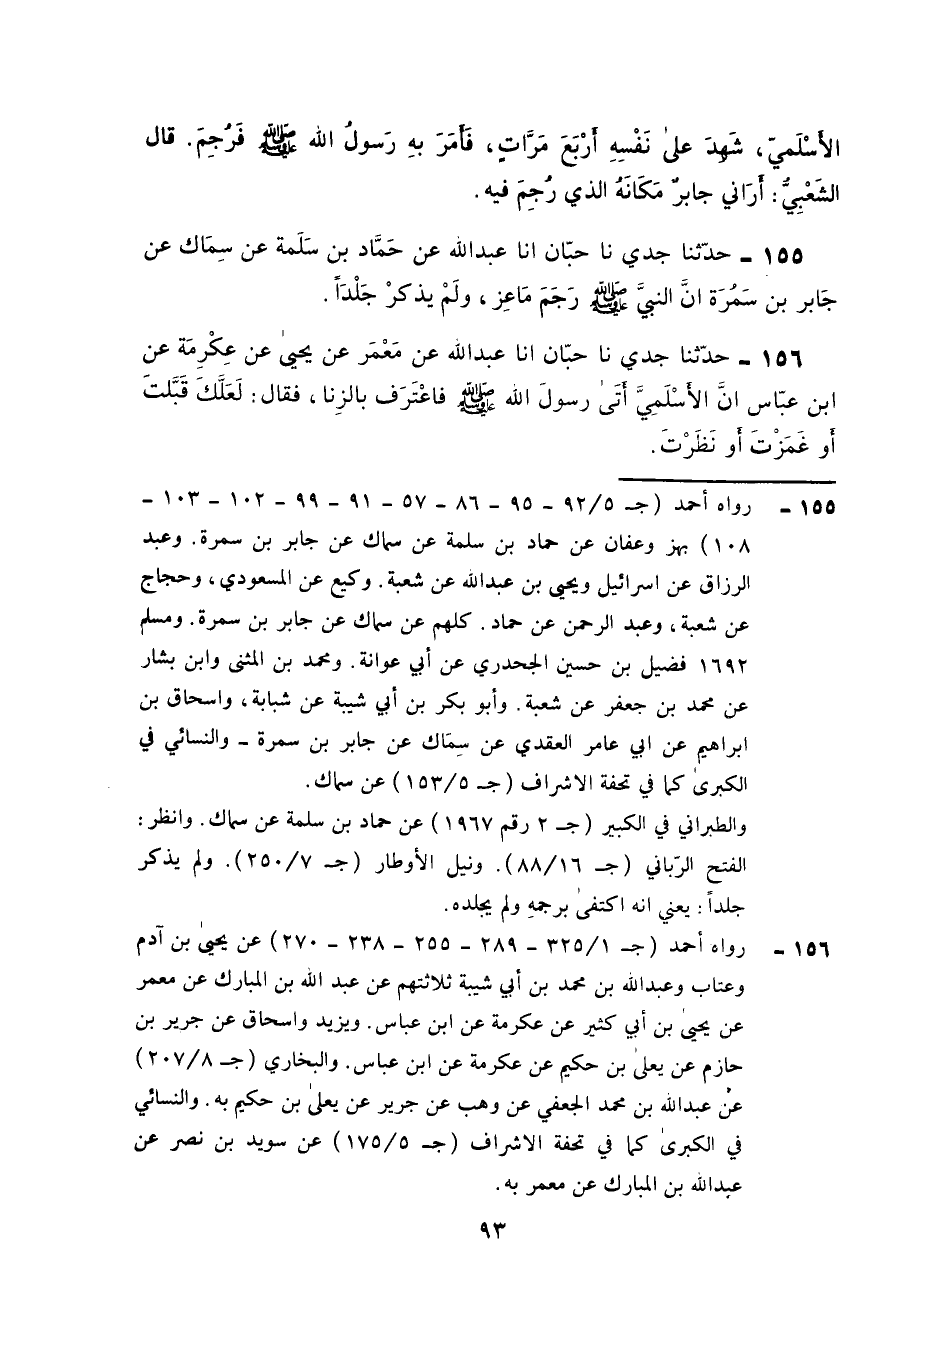 الأَسْلَميّ، شَهِدَ علىٰ نَفْسِهِ أَرْبَعَ مَرَّاتٍ، فَأَمَرَ بِهِ رَسولُ الله ﷺ فَرُجِمَ. قال
الشَعْبِيُّ: أَرَاني جابرٌ مَكَانَهُ الذي رُجِمَ فيه.
١٥٥ ـ حدّثنا جدي نا حبّان انا عبدالله عن حَمَّاد بن سَلَمة عن سِمَاك عن
جَابر بن سَمُرَة انَّ النبيَّ ﷺ رَجَمَ مَاعِز، ولَمْ يذكرْ جَلْدَاً.
١٥٦ ـ حدّثنا جدي نا حبّان انا عبدالله عن مَعْمَر عن يحيىٰ عن عِكْرِمَة عن
ابن عبّاس انَّ الأَسْلَمِيَّ أَتَىٰ رسولَ الله ﷺ فاعْتَرَف بالزِنا، فقال: لَعَلَّكَ قَبَّلتَ
أَو غَمَزْتَ أَو نَظَرْتَ.
١٥٥ ـ رواه أحمد (جـ ٩٢/٥ ـ ٩٥ ـ ٨٦ ـ ٥٧ ـ ٩١ ـ ٩٩ ـ ١٠٢ ـ ١٠٣ ـ
١٠٨) بهز وعفان عن حماد بن سلمة عن سماك عن جابر بن سمرة. وعبد
الرزاق عن اسرائيل ويحيى بن عبدالله عن شعبة. وكيع عن المسعودي، وحجاج
عن شعبة، وعبد الرحمن عن حماد. كلهم عن سماك عن جابر بن سمرة. ومسلم
١٦٩٢ فضيل بن حسين الجحدري عن أبي عوانة. ومحمد بن المثنى وابن بشار
عن محمد بن جعفر عن شعبة. وأبو بكر بن أبي شيبة عن شبابة، واسحاق بن
ابراهيم عن ابي عامر العقدي عن سِمَاك عن جابر بن سمرة ـ والنسائي في
الكبرىٰ كما في تحفة الاشراف (جـ ١٥٣/٥) عن سماك.
والطبراني في الكبير (جـ ٢ رقم ١٩٦٧) عن حماد بن سلمة عن سماك. وانظر:
الفتح الرّباني (جـ ٨٨/١٦). ونيل الأوطار (جـ ٢٥٠/٧). ولم يذكر
جلداً: يعني انه اكتفىٰ برجمهِ ولم يجلده.
١٥٦ ـ رواه أحمد (جـ ٣٢٥/١ ـ ٢٨٩ ـ ٢٥٥ ـ ٢٣٨ ـ ٢٧٠) عن يحيىٰ بن آدم
وعتاب وعبدالله بن محمد بن أبي شيبة ثلاثتهم عن عبد الله بن المبارك عن معمر
عن يحيىٰ بن أبي كثير عن عكرمة عن ابن عباس. ويزيد واسحاق عن جرير بن
حازم عن يعلىٰ بن حكيم عن عكرمة عن ابن عباس. والبخاري (جـ ٢٠٧/٨)
عن عبدالله بن محمد الجعفي عن وهب عن جرير عن يعلىٰ بن حكيم به. والنسائي
في الكبرىٰ كما في تحفة الاشراف (جـ ١٧٥/٥) عن سويد بن نصر عن
عبدالله بن المبارك عن معمر به.
٩٣